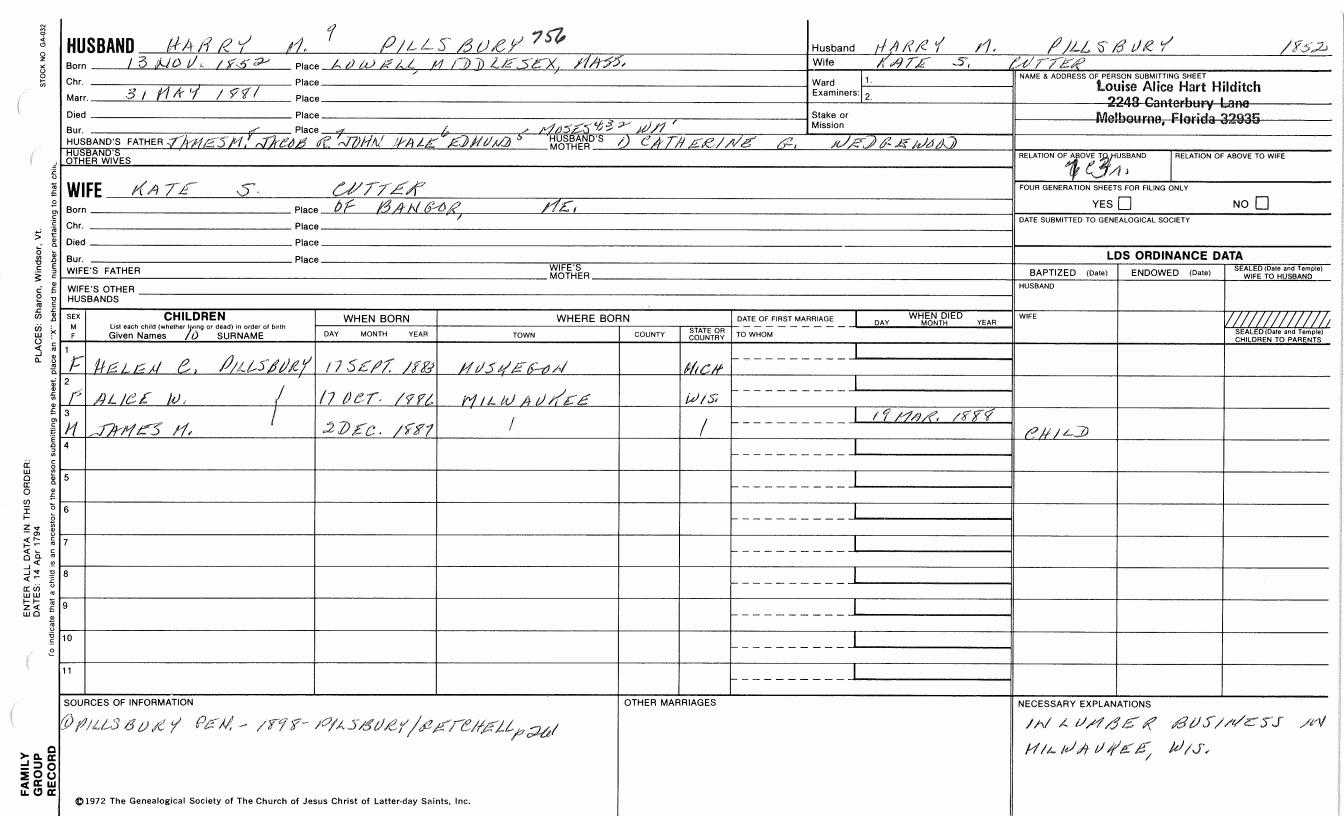 STOCK NO GA-032
PLACES: Sharon, Windsor, Vt.
ENTER ALL DATA IN THIS ORDER:
DATES: 14 Apr 1794
To indicate that a child is an ancestor of the person submitting the sheet, place an "X" behind the number pertaining to that child.
FAMILY GROUP RECORD
HUSBAND HARRY M. 9 PILLSBURY 756
Born 13 NOV. 1852 Place LOWELL, MIDDLESEX, MASS.
Chr. Place
Marr. 31 MAY 1881 Place
Died Place
Bur. Place
HUSBAND'S FATHER JAMES M. 8 JACOB R. 7 JOHN HALE 6 EDMUND 5 MOSES 4 3 2 WM 1 HUSBAND'S MOTHER 1) CATHERINE G. WEDGEWOOD
HUSBAND'S OTHER WIVES
WIFE KATE S. CUTTER
Born Place OF BANGOR, ME.
Chr. Place
Died Place
Bur. Place
WIFE'S FATHER WIFE'S MOTHER
WIFE'S OTHER HUSBANDS
Husband HARRY M. PILLSBURY 1852
Wife KATE S. CUTTER
Ward Examiners: 1. 2.
Stake or Mission
NAME & ADDRESS OF PERSON SUBMITTING SHEET
Louise Alice Hart Hilditch
2248 Canterbury Lane
Melbourne, Florida 32935
RELATION OF ABOVE TO HUSBAND RELATION OF ABOVE TO WIFE
FOUR GENERATION SHEETS FOR FILING ONLY
YES NO
DATE SUBMITTED TO GENEALOGICAL SOCIETY
LDS ORDINANCE DATA
BAPTIZED (Date) ENDOWED (Date) SEALED (Date and Temple) WIFE TO HUSBAND
HUSBAND
WIFE
SEALED (Date and Temple) CHILDREN TO PARENTS
SEX M F
CHILDREN
List each child (whether living or dead) in order of birth
Given Names 10 SURNAME
WHEN BORN
DAY MONTH YEAR
WHERE BORN
TOWN COUNTY STATE OR COUNTRY
DATE OF FIRST MARRIAGE
TO WHOM
WHEN DIED
DAY MONTH YEAR
1 F HELEN C. PILLSBURY 17 SEPT. 1883 MUSKEGON MICH
2 F ALICE W. / 17 OCT. 1886 MILWAUKEE WIS.
3 M JAMES M. 2 DEC. 1887 / / 19 MAR. 1888 CHILD
4
5
6
7
8
9
10
11
SOURCES OF INFORMATION
① PILLSBURY GEN. - 1898 - PILSBURY/GETCHELL
OTHER MARRIAGES
NECESSARY EXPLANATIONS
IN LUMBER BUSINESS IN
MILWAUKEE, WIS.
©1972 The Genealogical Society of The Church of Jesus Christ of Latter-day Saints, Inc.